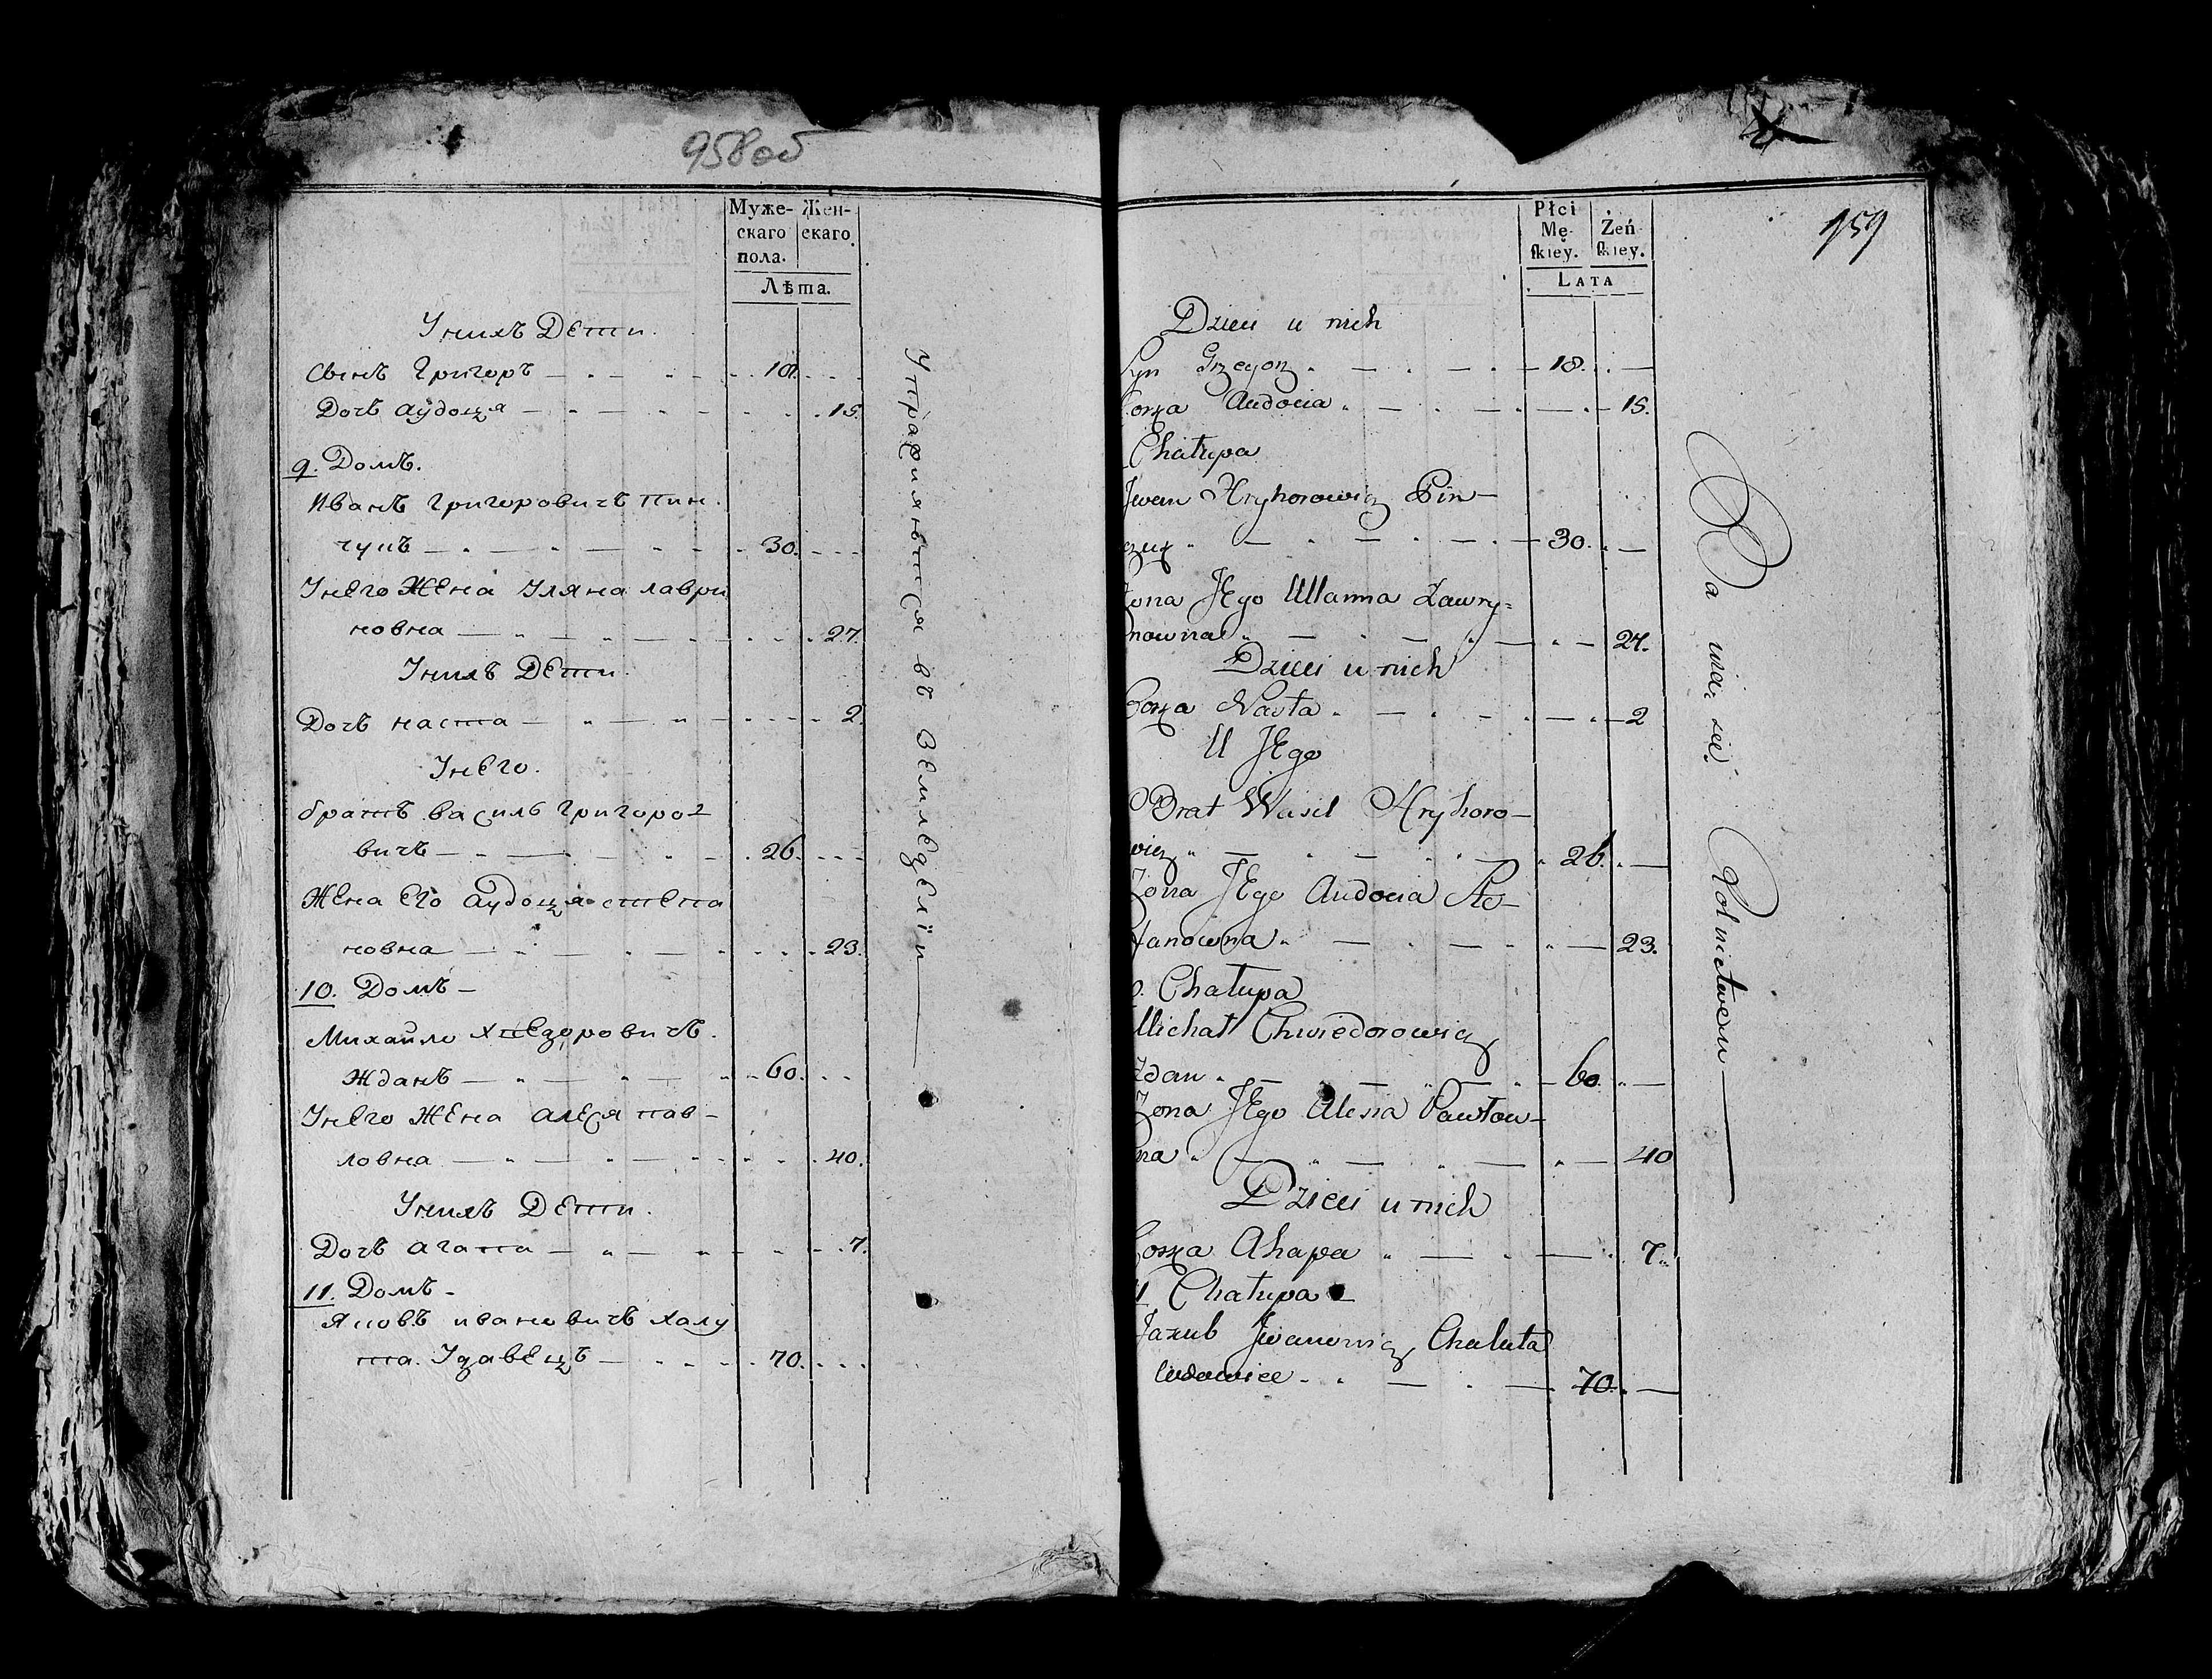 958об
Муже- Жен-
скаго скаго
пола.
Лѣта.
Унихъ Дети.
Сынъ Григоръ 18.
Дочъ аудоця 15.
9. Домъ.
Иванъ Григоровичъ Пин
чукъ 30.
Унего Жена Уляна лаври
новна 27.
Унихъ Дети.
Дочъ наста 2.
Унего.
братъ василь Григоро-
вичъ 26.
Жена его аудоця степа
новна 23.
10. Домъ
Михайло хведоровичъ.
Жданъ 60.
Унего Жена алеся пав-
ловна 40.
Унихъ Дети.
Дочъ агапа 7.
11. Домъ
Яковъ ивановичъ халу
та. Удавецъ 70.
Упражняются въ Земледелїи
959
Płci
Mę- Żeń
ſkiey. ſkiey.
LATA
Dzieci u nich
Syn Grzegorz 18.
Corka Audocia 15.
Chałupa
Jwan Hryhorowicz Pin-
czuk 30.
Zona JEgo Ullanna Ławry-
nowna 27.
Dzieci u nich
Corka Nasta 2
U JEgo
Brat Wasil Hryhoro-
wicz 26.
Zona JEgo Audocia Ste-
fanowna 23.
0. Chałupa
Michał Chwiedorowicz
Zdan 60.
Zona JEgo Alesia Pawłow-
na 40
Dzieci u nich
Corka Ahapa 7.
11 Chałupa
Jakub Jwanowicz Chałuta
Wdowiec 70.
Ba wią się Rolnictwem